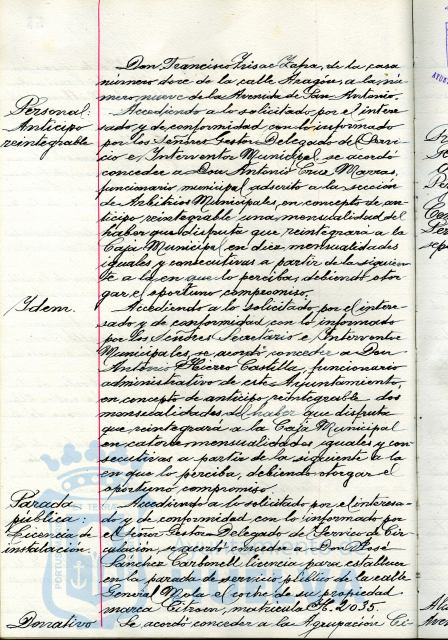 Don Francisco Trisac Zapa, de la casa
número doce de la calle Aragón, a la nú-
mero nueve de la Avenida de San Antonio.
Personal:
Anticipo
reintegrable
Accediendo a lo solicitado por el intere-
sado y de conformidad con lo informado
por los Señores Gestor Delegado del Servi-
cio e Interventor Municipal, se acordó
conceder a Don Antonio Cruz Marcas,
funcionario municipal adscrito a la sección
de Arbitrios Municipales, en concepto de an-
ticipo reintegrable una mensualidad del
haber que disfruta que reintegrará a la
Caja Municipal en diez mensualidades
iguales y consecutivas a partir de la siguien-
te a la en que lo perciba, debiendo otor-
gar el oportuno compromiso.
Idem.
Accediendo a lo solicitado por el intere-
sado y de conformidad con lo informado
por los Señores Secretario e Interventor
Municipales, se acordó conceder a Don
Antonio Huerto Castilla, funcionario
administrativo de este Ayuntamiento,
en concepto de anticipo reintegrable dos
mensualidades del haber que disfruta
que reintegrará a la Caja Municipal
en catorce mensualidades iguales y con-
secutivas a partir de la siguiente a la
en que lo perciba, debiendo otorgar el
oportuno compromiso.
Parada
pública:
Licencia de
instalación.
Accediendo a lo solicitado por el interesa-
do y de conformidad con lo informado por
el Señor Gestor Delegado del Servicio de Cir-
culación se acordó conceder a D. José
Sánchez Carbonell licencia para establecer
en la parada de servicio público de la calle
General Mola el coche de su propiedad
marca Citroen, matrícula H. 2035.
Donativo
Se acordó conceder a la Agrupación Ci-